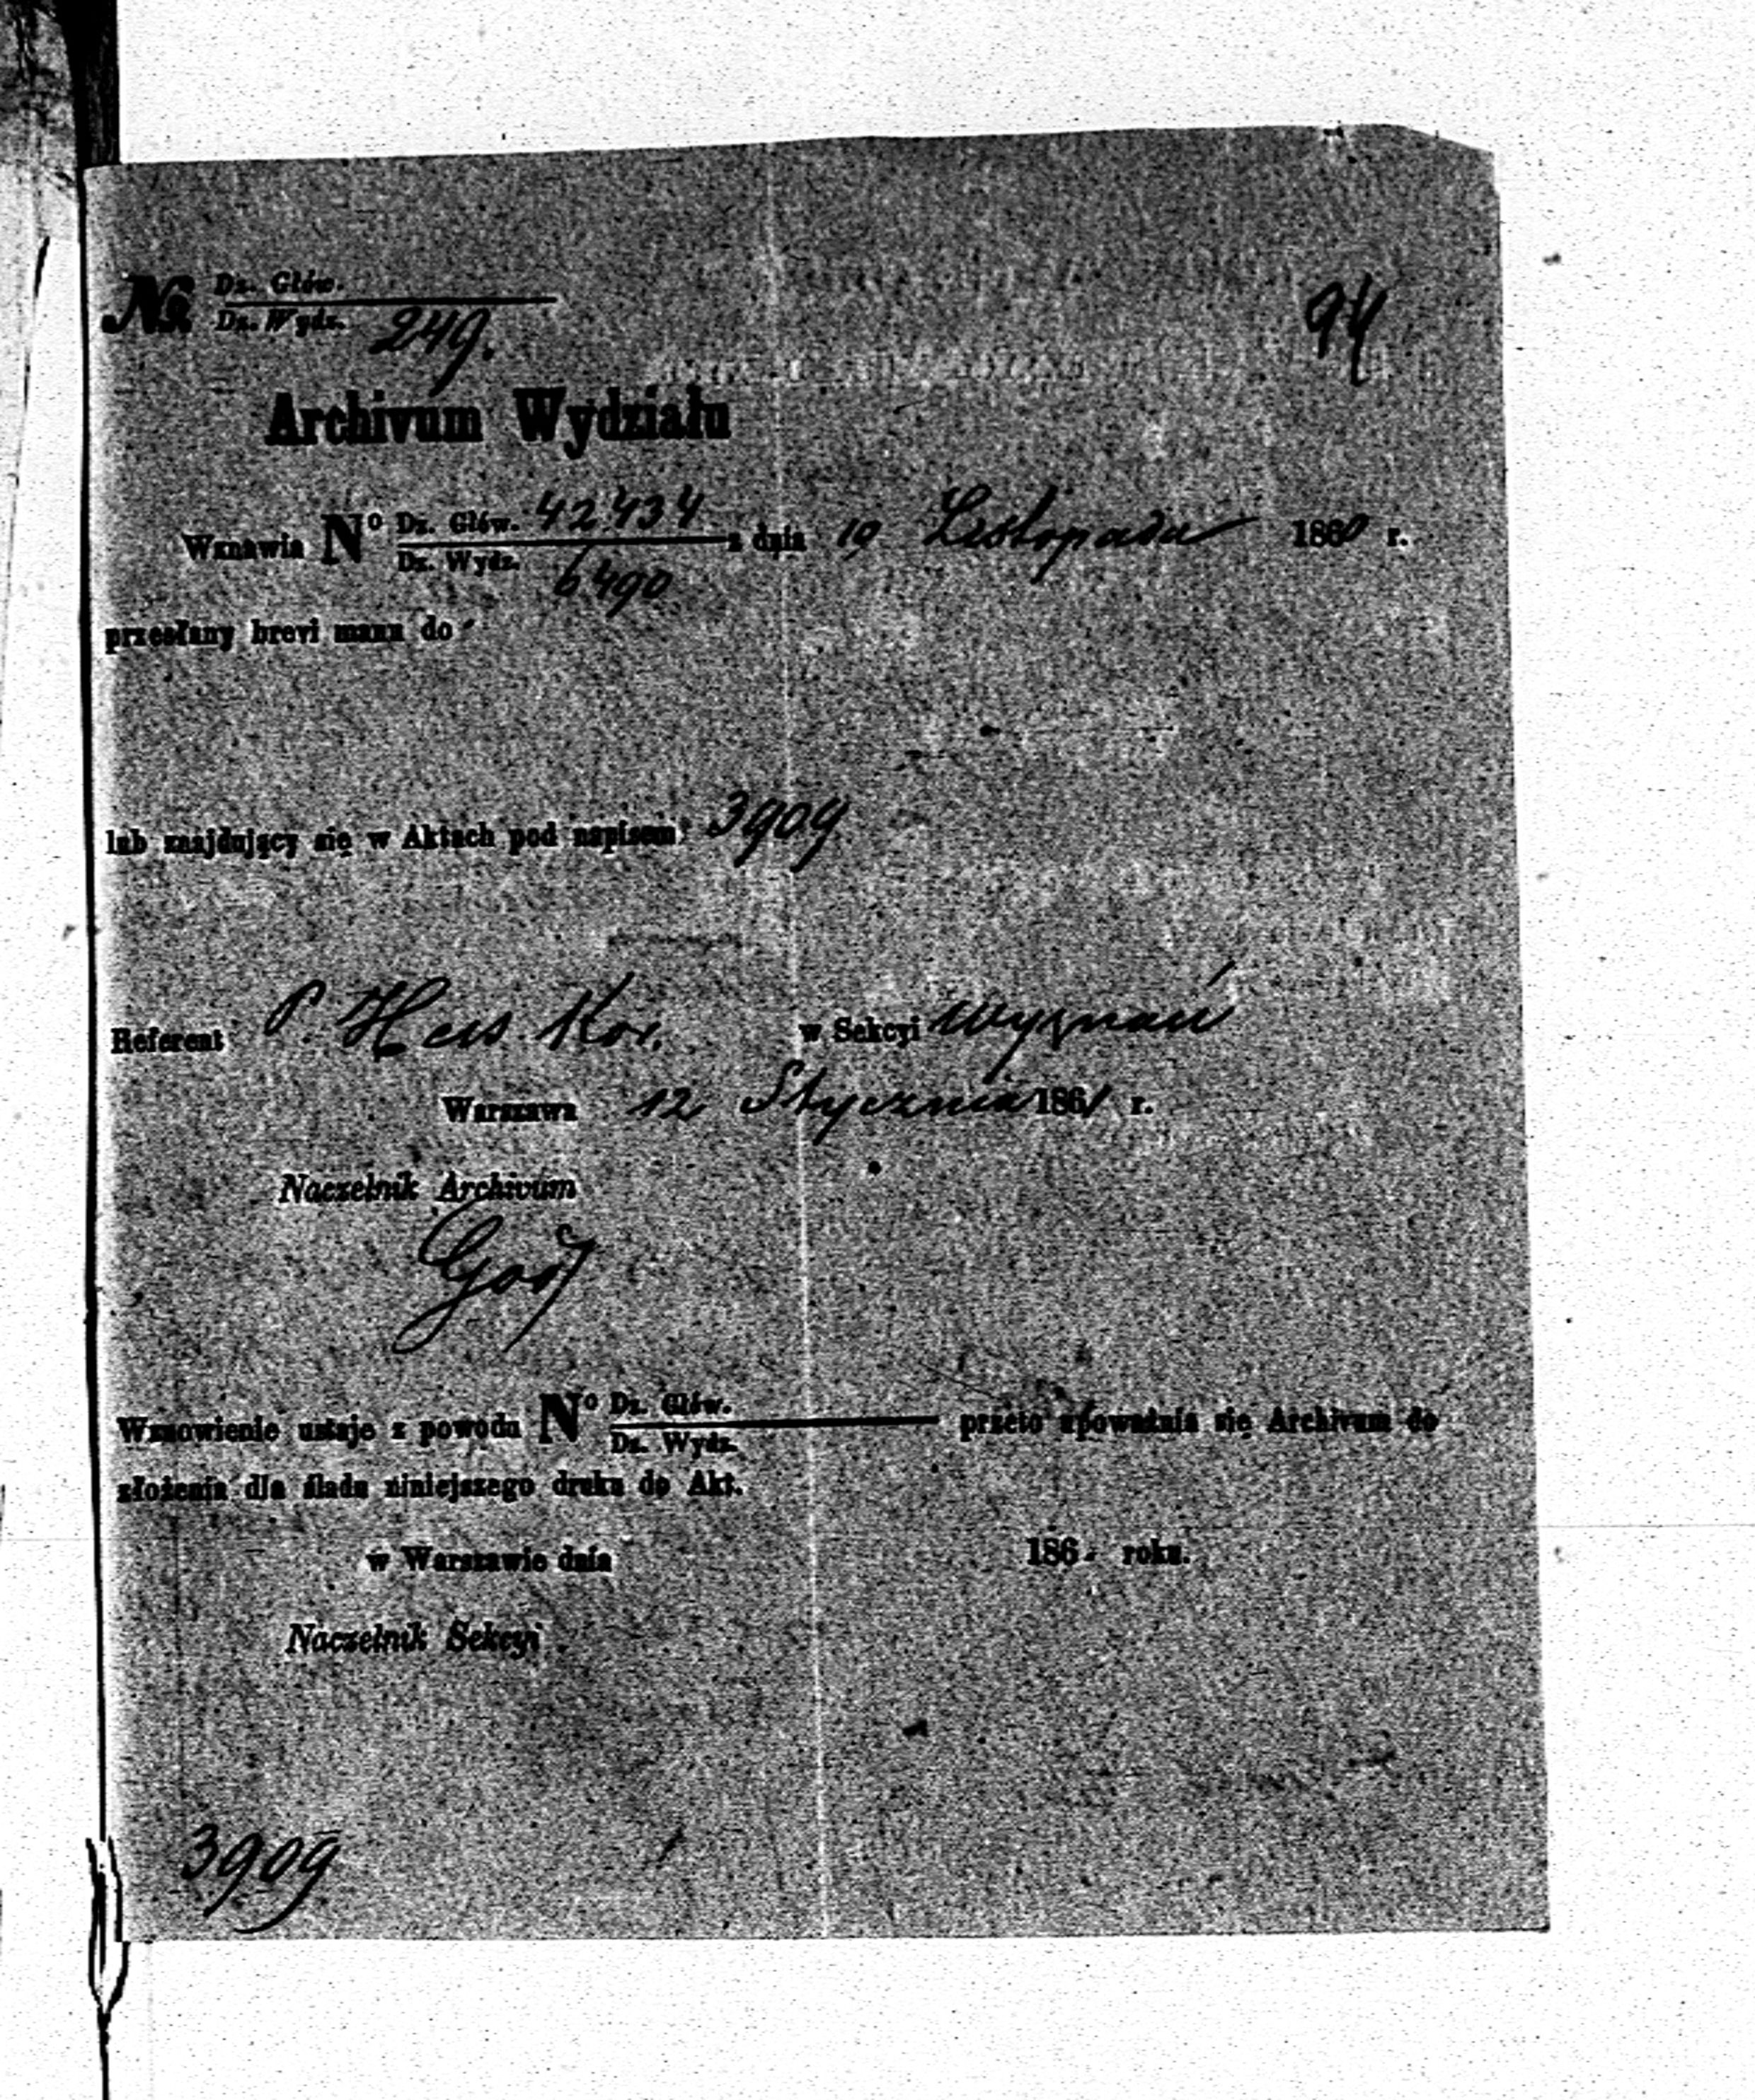 № Dz. Głów.
Dz. Wydz. 249.
94
Archivum Wydziału
Wznawia Nº Dz. Głów. 42434 z dnia 19 Listopada 1860 r.
Dz. Wydz. 6490
przesłany brevi manu do
lub znajdujący się w Aktach pod napisem: 3909
Referent P. Hess. Kor. w Sekcyi Wyznań
Warszawa 12 Stycznia 1861 r.
Naczelnik Archivum
Wznowienie ustaje z powodu Nº Dz. Głów. przeto upoważnia się Archivum do
Dz. Wydz.
złożenia dla śladu niniejszego druku do Akt.
w Warszawie dnia 186 roku.
Naczelnik Sekcyi
3909